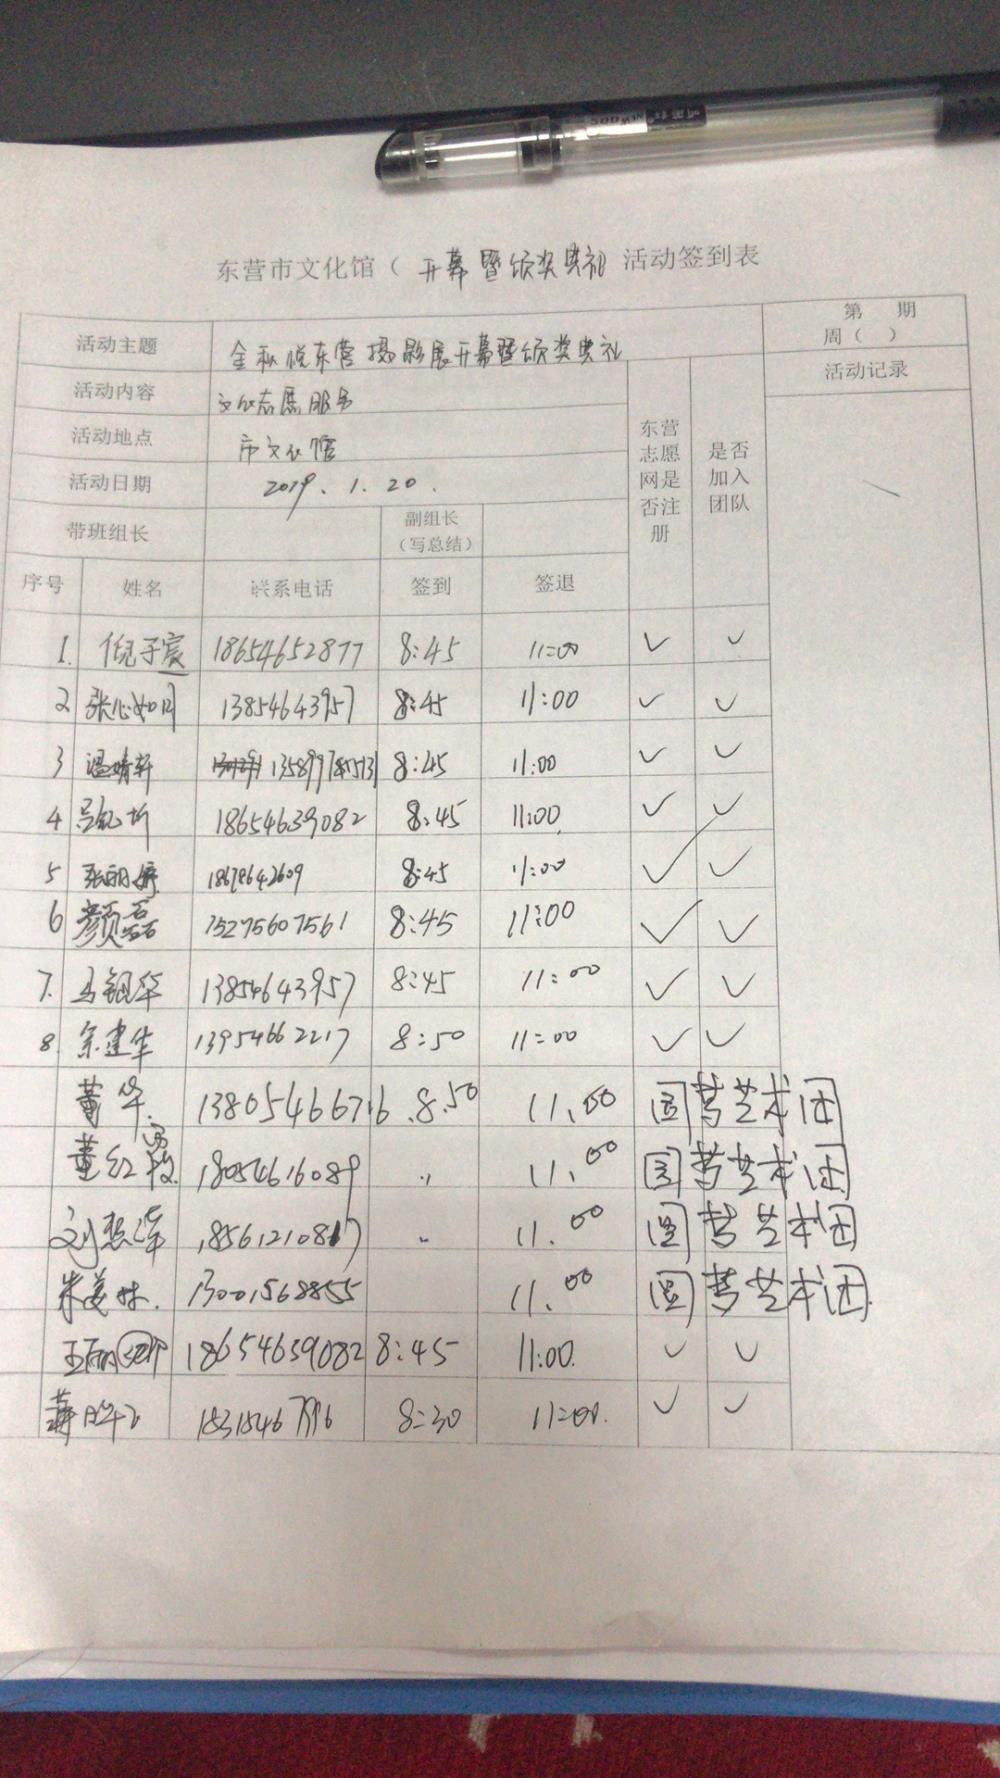 东营市文化馆（开幕暨颁奖典礼）活动签到表
第 期
周（ ）
活动主题 金秋悦东营摄影展开幕暨颁奖典礼
活动记录
活动内容 文化志愿服务
活动地点 市文化馆
活动日期 2019.1.20.
东营志愿网是否注册 是否加入团队
带班组长 副组长（写总结）
序号 姓名 联系电话 签到 签退
1. 倪子宸 18654652877 8:45 11:00 ✓ ✓
2 张心如 13854643957 8:45 11:00 ✓ ✓
3 温婧轩 8:45 11:00 ✓ ✓
4 18654639082 8:45 11:00 ✓ ✓
5 张丽婷 18678642609 8:45 11:00 ✓ ✓
6 颜磊 15275607561 8:45 11:00 ✓ ✓
7. 马银华 13854643957 8:45 11:00 ✓ ✓
8. 余建华 13954662217 8:50 11:00 ✓ ✓
董华 13805466716 8.50 11.00 圆梦艺术团
董红霞 18054616089 〃 11.00 圆梦艺术团
18561210817 〃 11.00 圆梦艺术团
朱美林 13001568855 11.00 圆梦艺术团
王丽娜 18654639082 8:45 11:00. ✓ ✓
8:30 11:00. ✓ ✓